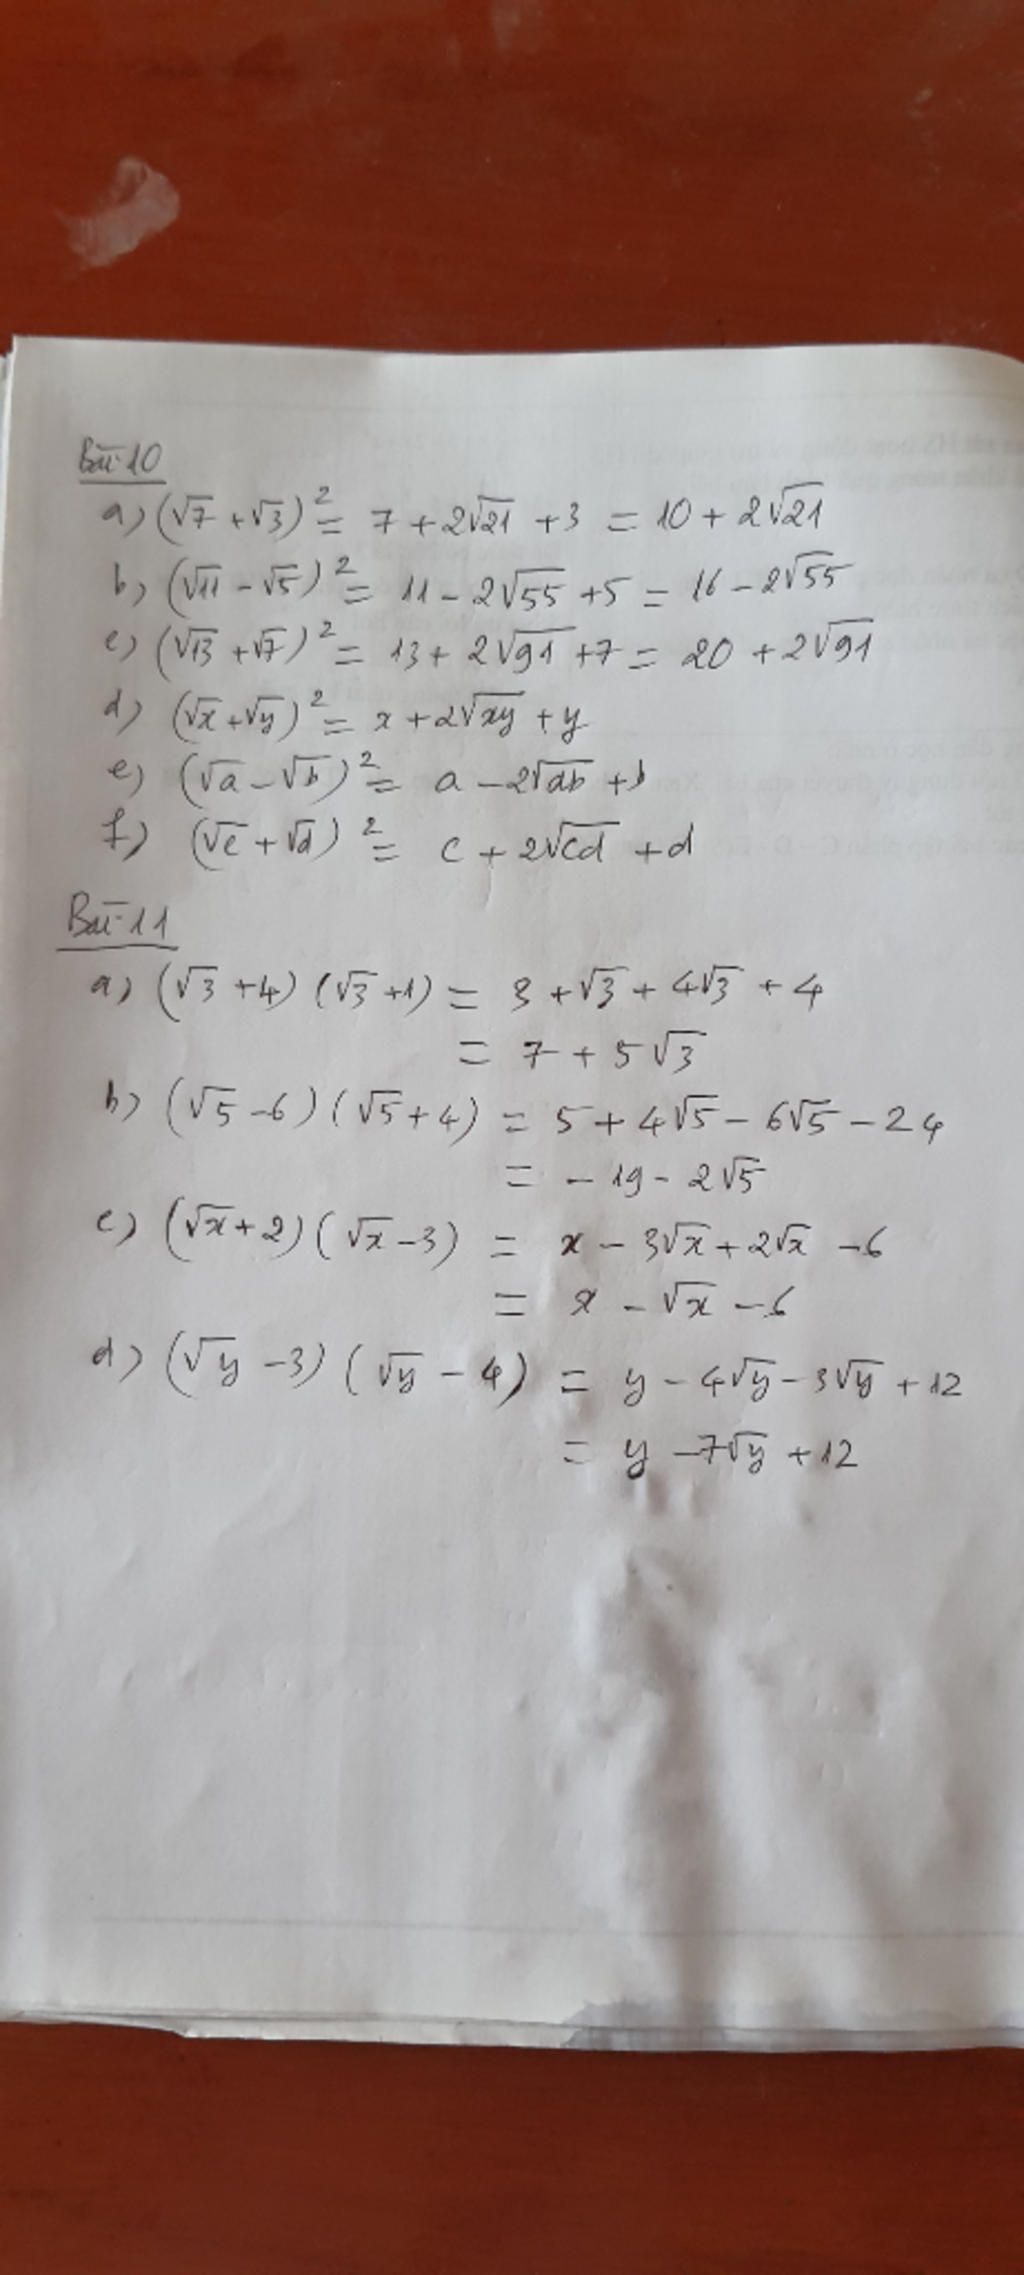 Bài 10
a) (√7 + √3)² = 7 + 2√21 + 3 = 10 + 2√21
b) (√11 - √5)² = 11 - 2√55 + 5 = 16 - 2√55
c) (√13 + √7)² = 13 + 2√91 + 7 = 20 + 2√91
d) (√x + √y)² = x + 2√xy + y
e) (√a - √b)² = a - 2√ab + b
f) (√c + √d)² = c + 2√cd + d
Bài 11
a) (√3 + 4) (√3 + 1) = 3 + √3 + 4√3 + 4
= 7 + 5√3
b) (√5 - 6) (√5 + 4) = 5 + 4√5 - 6√5 - 24
= - 19 - 2√5
c) (√x + 2) (√x - 3) = x - 3√x + 2√x - 6
= x - √x - 6
d) (√y - 3) (√y - 4) = y - 4√y - 3√y + 12
= y - 7√y + 12